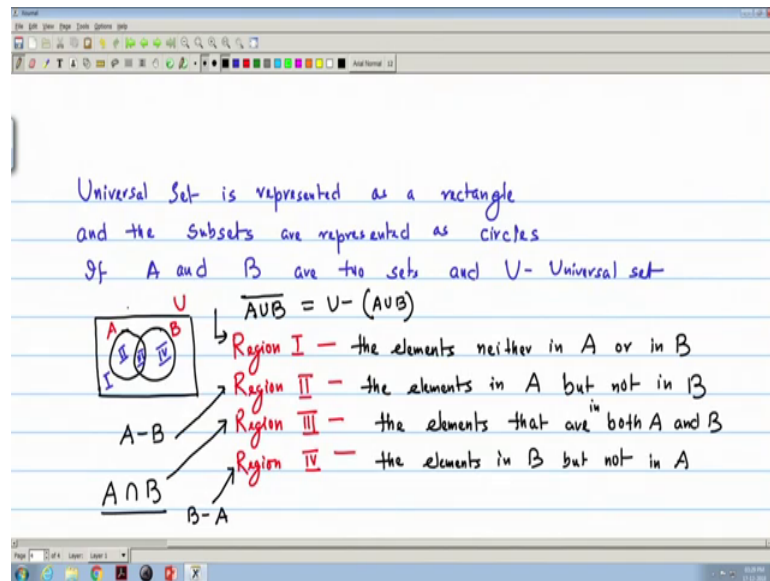 Journal
File Edit View Page Tools Options Help
Arial Normal 12
Universal Set is represented as a rectangle
and the Subsets are represented as circles
If A and B are two sets and U- Universal set
U
A B
I II III IV
\overline{A∪B} = U - (A∪B)
Region I - the elements neither in A or in B
Region II - the elements in A but not in B
A-B
Region III - the elements that are in both A and B
Region IV - the elements in B but not in A
A ∩ B
B-A
Page 4 of 4 Layer: Layer 1